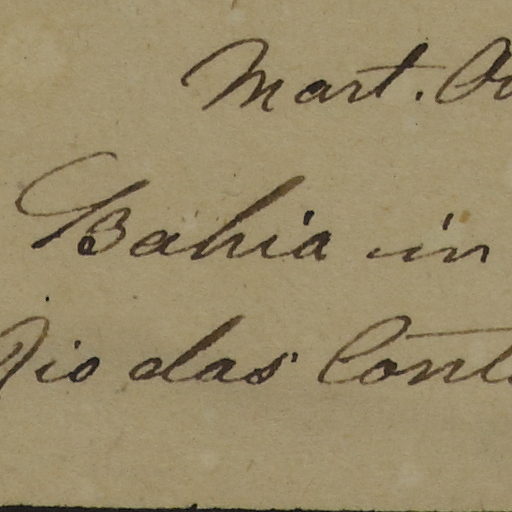 Mart.
Bahia in
Rio das Cont